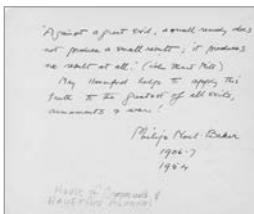 "Against a great evil, a small remedy does
not produce a small result; it produces
no result at all." (John Stuart Mill)
May Haverford helps to apply this
truth to the greatest of all evils,
armaments & war!
Philip Noel-Baker
1906-7
1954